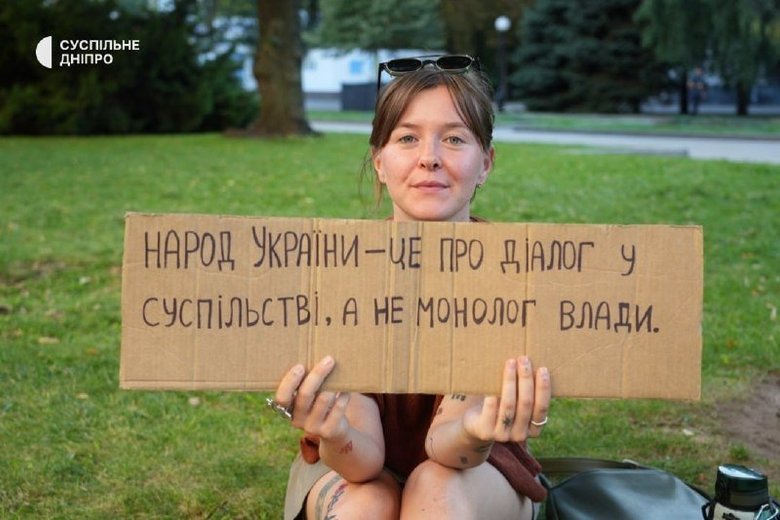 СУСПІЛЬНЕ
ДНІПРО
НАРОД УКРАЇНИ – ЦЕ ПРО ДІАЛОГ У
СУСПІЛЬСТВІ, А НЕ МОНОЛОГ ВЛАДИ.